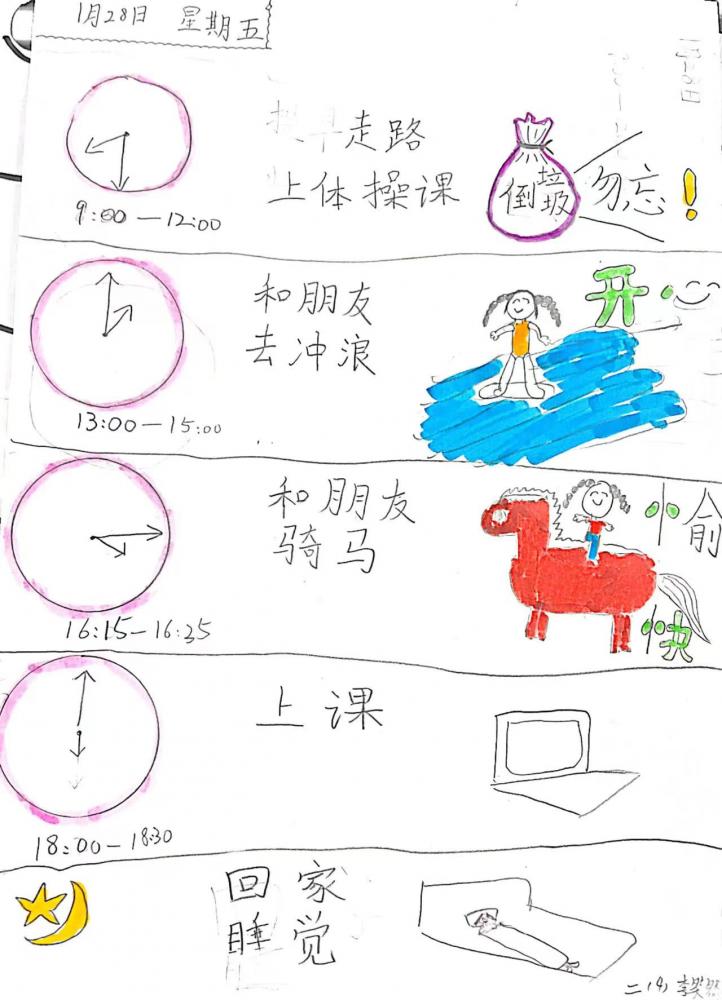 1月28日 星期五
早走路
上体操课
倒垃圾
勿忘!
9:00—12:00
和朋友
去冲浪
开心
13:00—15:00
和朋友
骑马
愉
快
16:15—16:35
上课
18:00—18:30
回家
睡觉